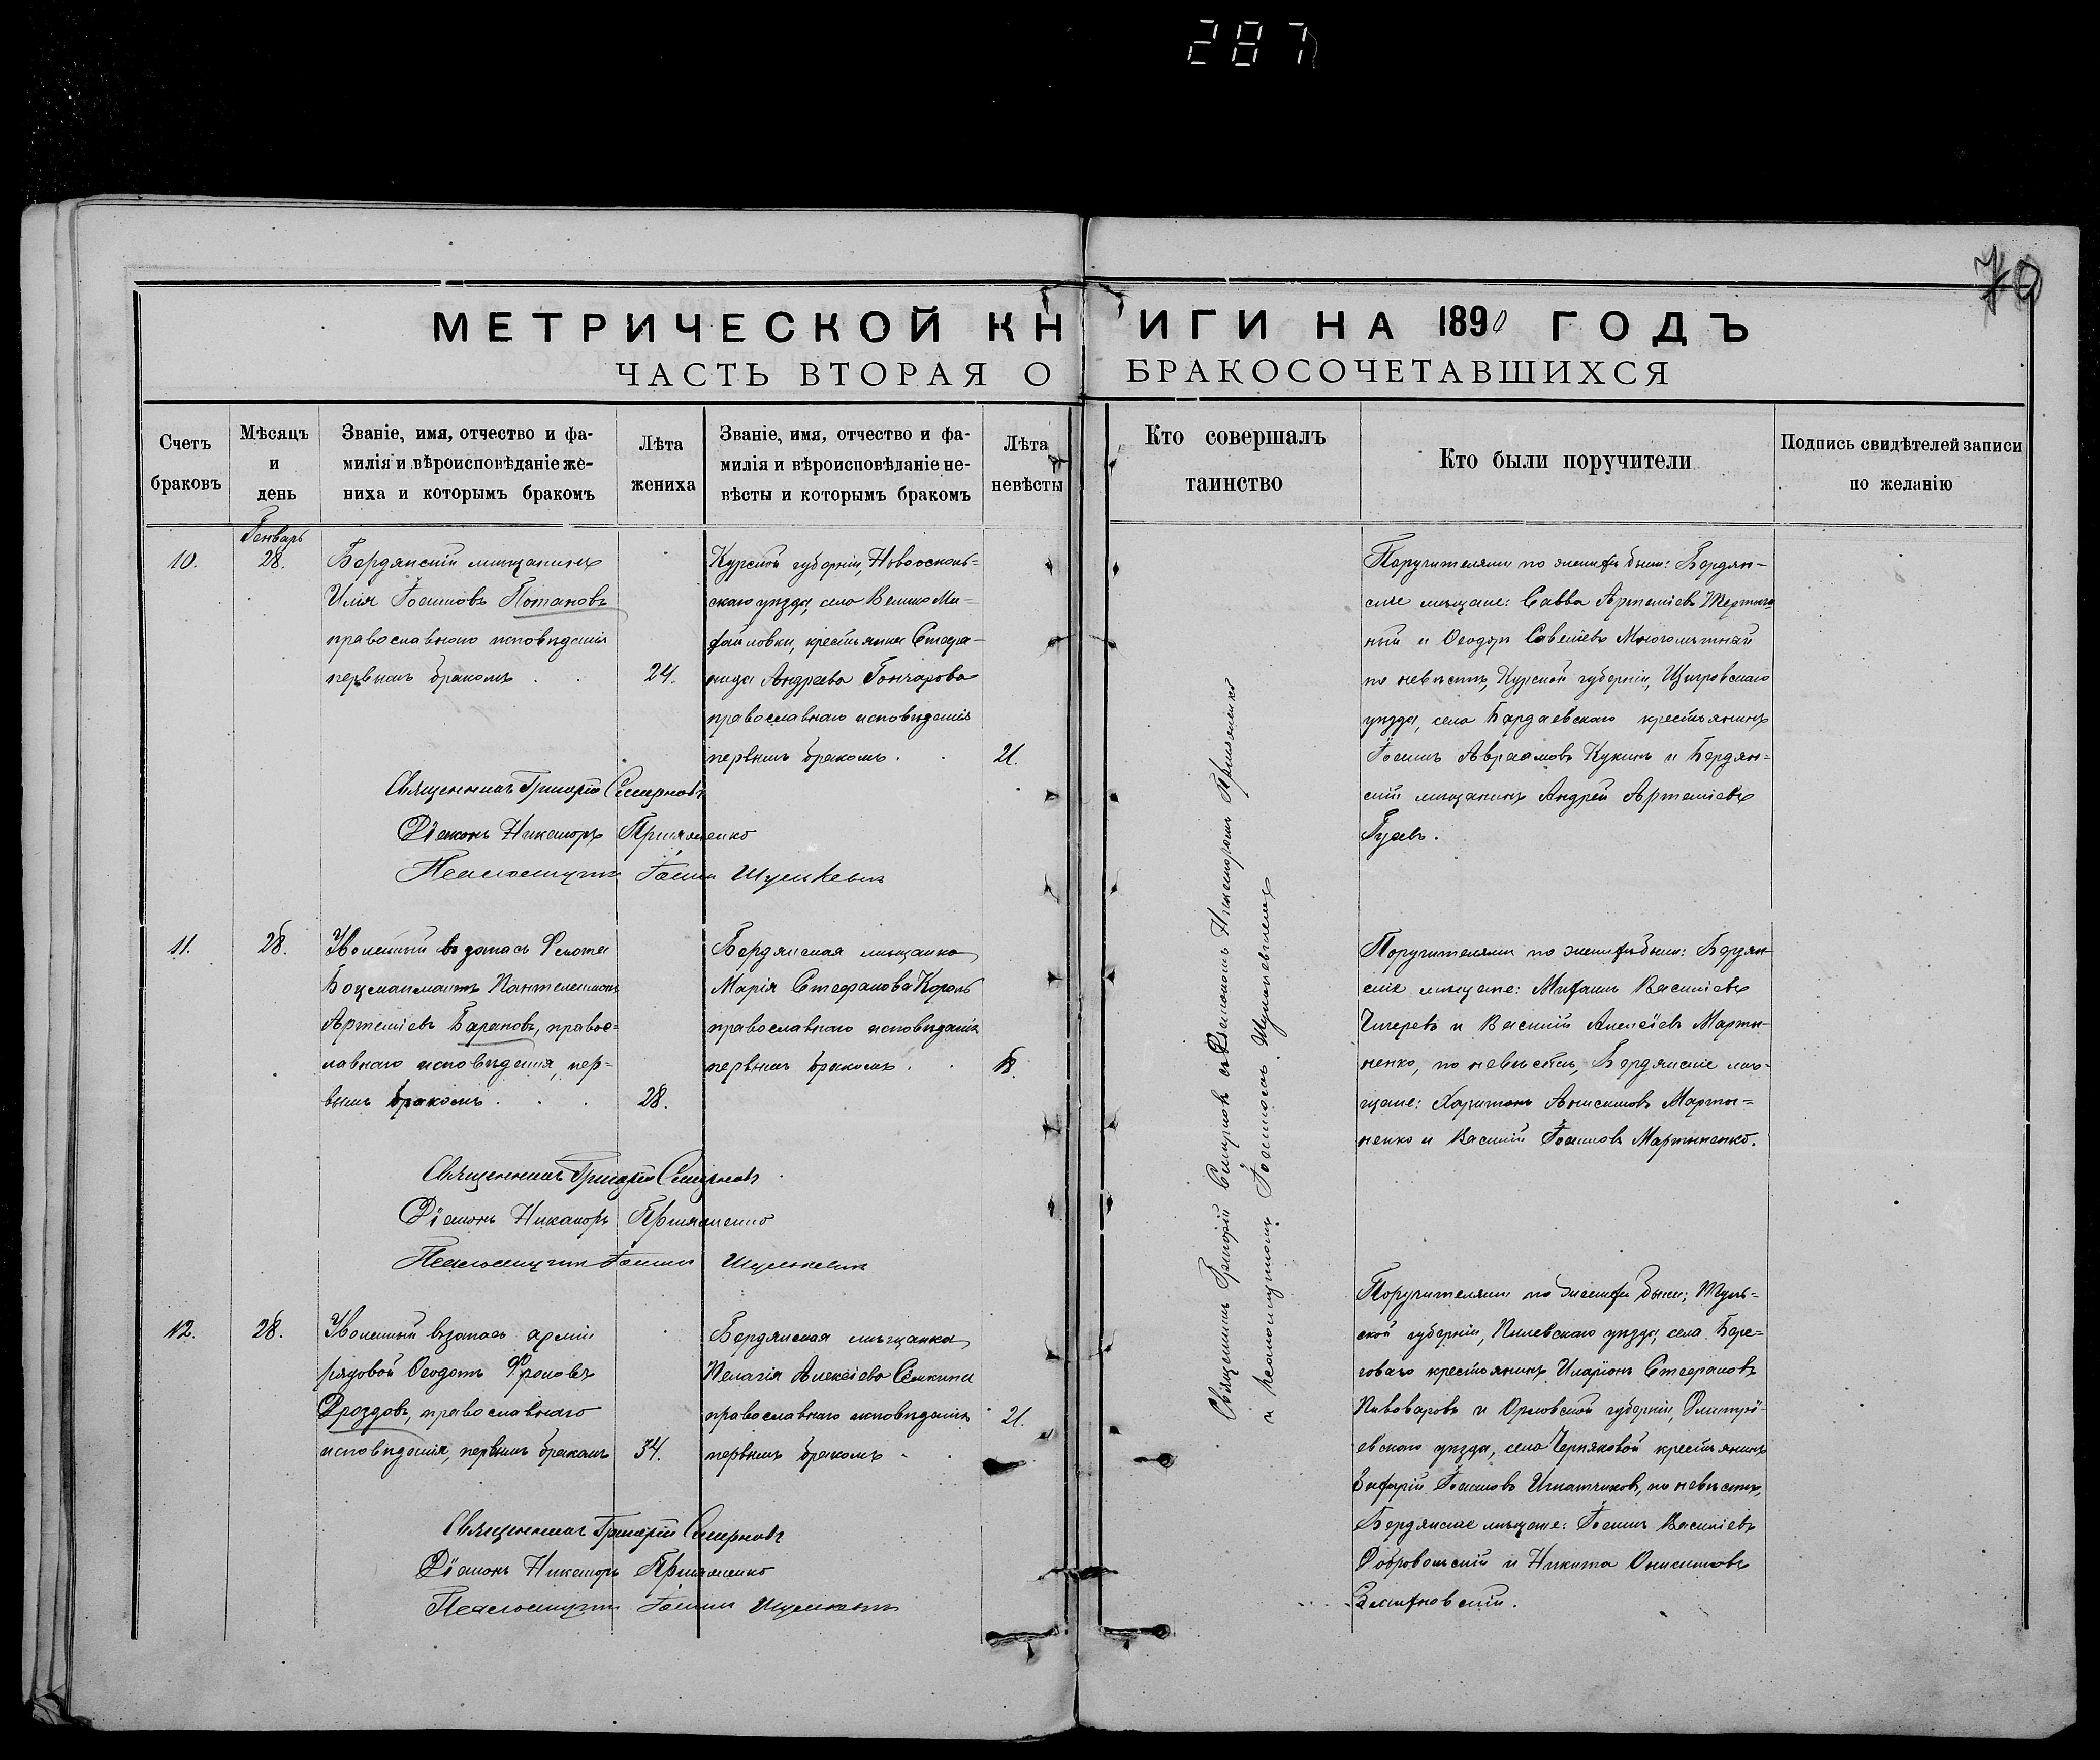 287
70
МЕТРИЧЕСКОЙ КНИГИ НА 1890 ГОДЪ
ЧАСТЬ ВТОРАЯ О БРАКОСОЧЕТАВШИХСЯ
Счетъ браковъ
Мѣсяцъ и день
Званіе, имя, отчество и фа-
милія и вѣроисповѣданіе же-
ниха и которымъ бракомъ
Лѣта жениха
Званіе, имя, отчество и фа-
милія и вѣроисповѣданіе не-
вѣсты и которымъ бракомъ
Лѣта невѣсты
Кто совершалъ
таинство
Кто были поручители
Подпись свидѣтелей записи
по желанію
Генварь
10.
28.
Бердянскій мѣщанинъ
Илія Іоанновъ Потаповъ
православнаго исповѣданія
первымъ бракомъ
24.
Курской губерніи, Новоосколь-
скаго уѣзда, села Велико Ми-
хайловки, крестьянка Стефа-
нида Андреева Гончарова
православнаго исповѣданія
первымъ бракомъ.
21.
Поручителями по женихѣ были: Бердян-
скіе мѣщане: Савва Артеміевъ
и Ѳеодоръ Савеліевъ
по невѣстѣ, Курской губерніи, Щигровскаго
уѣзда, села Бардаевскаго крестьянинъ
Іоаннъ Авраамовъ Кукинъ и Бердян-
скій мѣщанинъ Андрей Артеміевъ
Гусевъ.
Священникъ Григорій Смирновъ
Діаконъ Никаноръ Пришляменко
Псаломщикъ Іоаннъ
11.
28.
Уволенный въ запасъ Флота
Боцманматъ Пантелеимонъ
Артеміевъ Барановъ, правос-
лавнаго исповѣданія, пер-
вымъ бракомъ.
28.
Бердянская мѣщанка
Марія Стефанова Король
православнаго исповѣданія
первымъ бракомъ.
18.
Поручителями по женихѣ были: Бердян-
скіе мѣщане: Михаилъ Василіевъ
Чигеревъ и Василій Алексіевъ Марты-
ненко, по невѣстѣ, Бердянскіе мѣ-
щане: Харитонъ Анисимовъ Марты-
ненко и Василій Іоанновъ Мартыненко.
Священникъ Григорій Смирновъ
Діаконъ Никаноръ
Псаломщикъ Іоаннъ
12.
28.
Уволенный въ запасъ арміи
рядовой Ѳеодотъ Фроловъ
Дроздовъ, православнаго
исповѣданія, первымъ бракомъ
34.
Бердянская мѣщанка
Пелагія Алексіева Семкина
православнаго исповѣданія
первымъ бракомъ.
21.
Поручителями по женихѣ были; Туль-
ской губерніи, уѣзда, села Бере-
говаго крестьянинъ Иларіонъ Стефановъ
Пивоваровъ и Орловской губерніи, Дмитрі-
евскаго уѣзда, села Черняковой крестьянинъ
Іоанновъ Игнатчиковъ, по невѣстѣ,
Бердянскіе мѣщане: Іоаннъ Василіевъ
Добровольскій и Никита Онисимовъ
Священникъ Григорій Смирновъ
Діаконъ Никаноръ
Псаломщикъ Іоаннъ
Священникъ Григорій Смирновъ съ Діакономъ Никаноромъ
и псаломщикомъ Іоанномъ